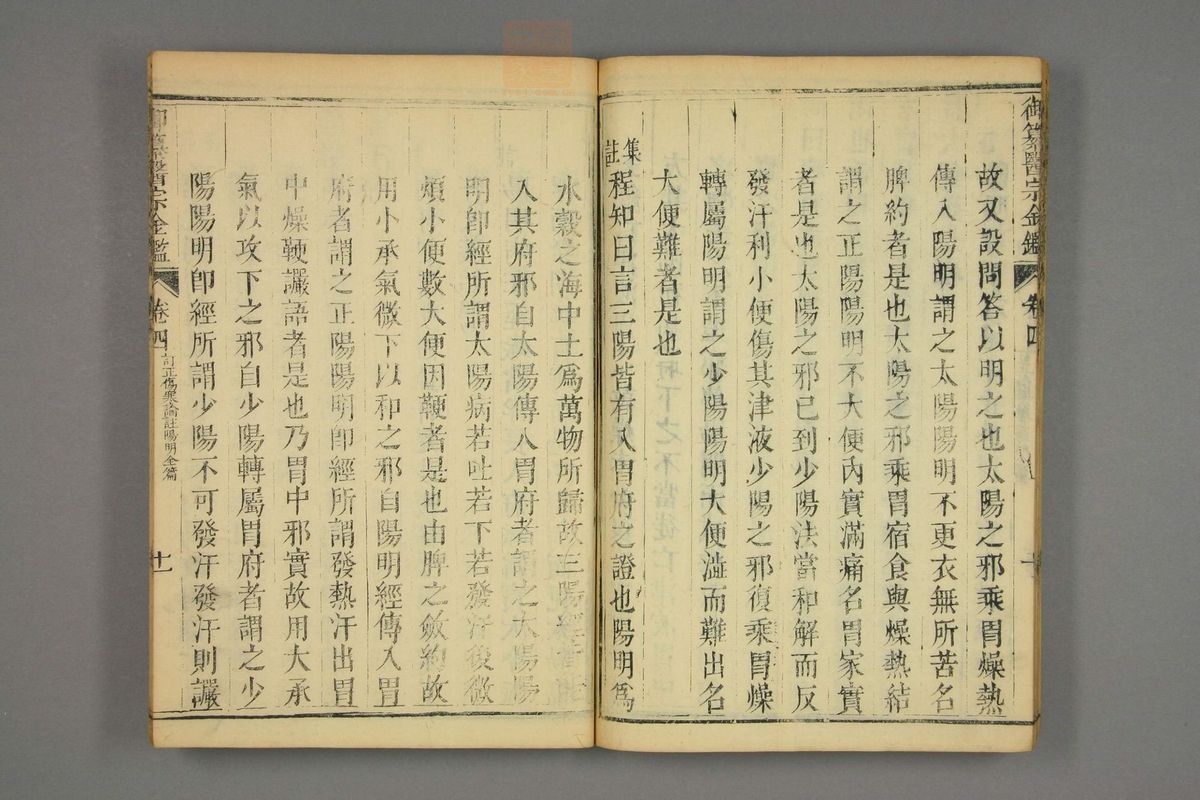 御纂醫宗金鑑 卷四
故又設問答以明之也太陽之邪乘胃燥熱
傳入陽明謂之太陽陽明不更衣無所苦名
脾約者是也太陽之邪乘胃宿食與燥熱結
謂之正陽陽明不大便內實滿痛名胃家實
者是也太陽之邪已到少陽法當和解而反
發汗利小便傷其津液少陽之邪復乘胃燥
轉屬陽明謂之少陽陽明大便澁而難出名
大便難者是也
集註程知曰言三陽皆有入胃府之證也陽明爲
水穀之海中土爲萬物所歸故三陽經皆
入其府邪自太陽傳入胃府者謂之太陽陽
明卽經所謂太陽病若吐若下若發汗後微
煩小便數大便因鞕者是也由脾之斂約故
用小承氣微下以和之邪自陽明經傳入胃
府者謂之正陽陽明卽經所謂發熱汗出胃
中燥鞕讝語者是也乃胃中邪實故用大承
氣以攻下之邪自少陽轉屬胃府者謂之少
陽陽明卽經所謂少陽不可發汗發汗則讝
御纂醫宗金鑑 卷四 訂正傷寒論註陽明全篇 十一